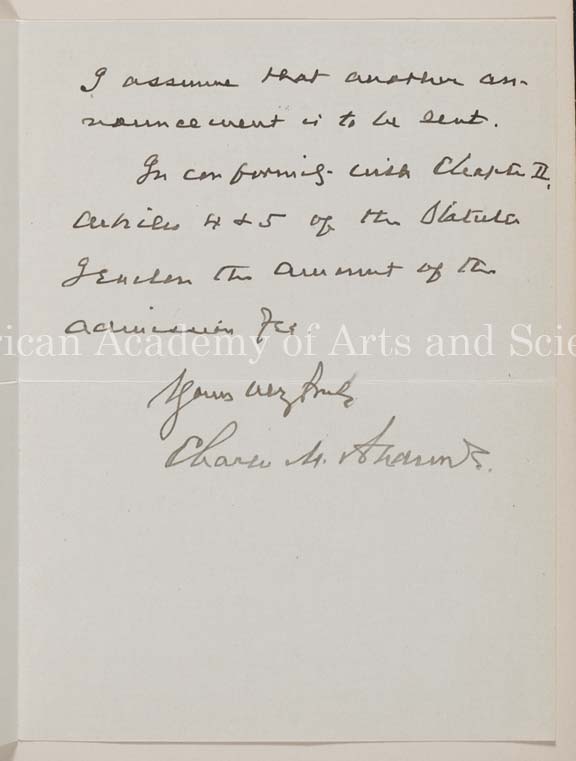 I assume that another an-
nouncement is to be sent.
In conformity with Chapter II,
Articles 4 & 5 of the Statutes
I enclose the amount of the
admission fee
rican Academy of Arts and Scie
Yours very truly
Charles M. Andrews.